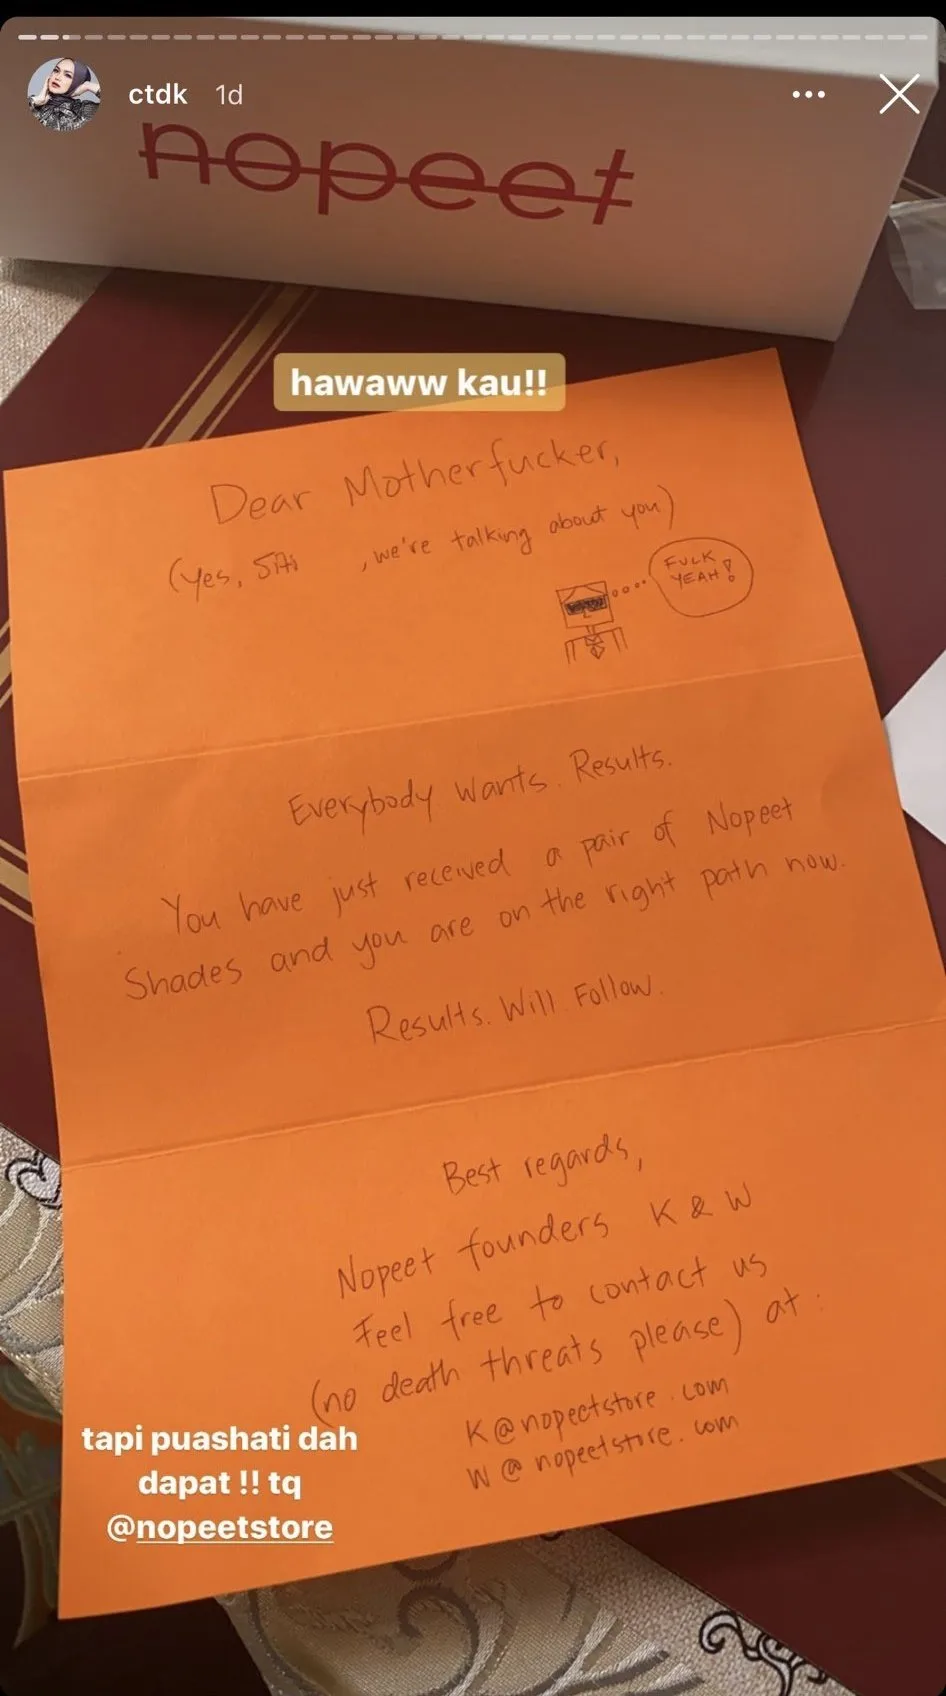 ctdk 1d
nopeet
hawaww kau!!
Dear Motherfucker,
(Yes, Siti , we're talking about you)
FUCK
YEAH!
Everybody Wants. Results.
You have just received a pair of Nopeet
Shades and you are on the right path now.
Results. Will Follow.
Best regards,
Nopeet founders K & W
Feel free to contact us
(no death threats please) at :
K@nopeetstore.com
W@nopeetstore.com
tapi puashati dah
dapat !! tq
@nopeetstore